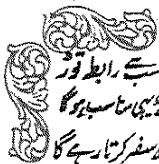 سے رابطہ توڑ
ہی مناسب ہوگا
سفر کرتا رہے گا